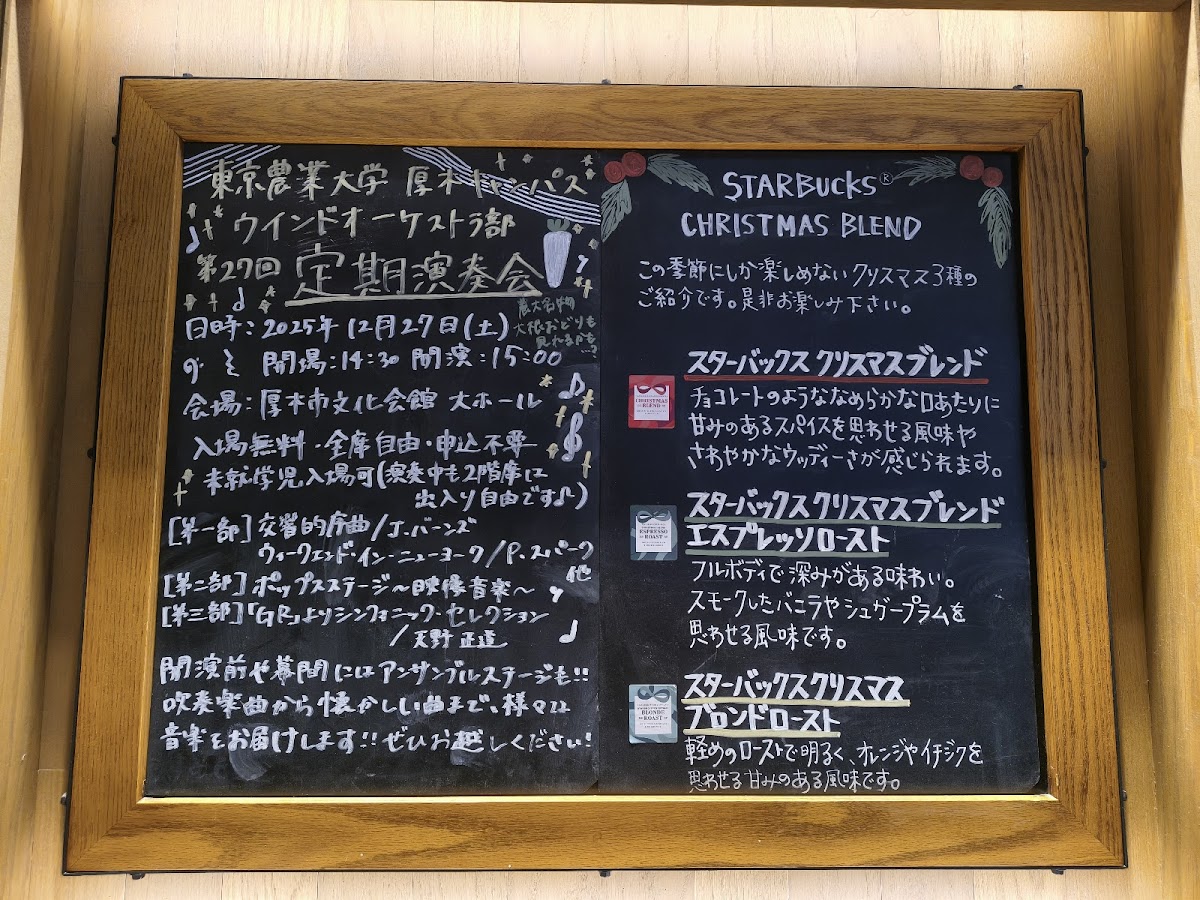 東京農業大学 厚木キャンパス
ウインドオーケストラ部
第27回 定期演奏会
農大名物
大根おどりも
見れるかも
…?
日時：2025年 12月27日(土)
開場：14:30 開演：15:00
会場：厚木市文化会館 大ホール
入場無料・全席自由・申込不要
未就学児入場可(演奏中も2階席は
出入り自由です♪)
[第一部] 交響的序曲/J.バーンズ
ウィークエンド・イン・ニューヨーク/P.スパーク
他
[第二部] ポップスステージ～映像音楽～
[第三部]「GR」よりシンフォニック・セレクション
/天野 正道
開演前や幕間にはアンサンブルステージも!!
吹奏楽曲から懐かしい曲まで、様々な
音楽をお届けします!!ぜひお越しください!
STARBUCKS®
CHRISTMAS BLEND
この季節にしか楽しめないクリスマス3種の
ご紹介です。是非お楽しみ下さい。
スターバックス クリスマスブレンド
CHRISTMAS
BLEND
チョコレートのようななめらかな口あたりに
甘みのあるスパイスを思わせる風味や
さわやかなウッディーさが感じられます。
スターバックス クリスマスブレンド
エスプレッソロースト
ESPRESSO
ROAST
フルボディで深みがある味わい。
スモークしたバニラやシュガープラムを
思わせる風味です。
スターバックス クリスマス
ブロンドロースト
BLONDE
ROAST
軽めのローストで明るく、オレンジやイチジクを
思わせる甘みのある風味です。